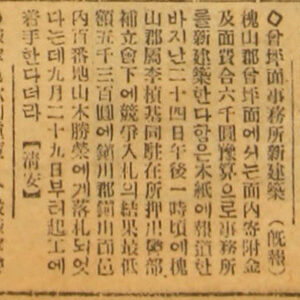 ◇曾坪面事務所新建築 (旣報)
槐山郡曾坪面에서는面內寄附金
及面費合六千圓豫算으로事務所
를新建築한다함은本紙에報道한
바지난二十四日午後一時頃에槐
山郡屬李楨基同駐在所押川警部
補立會下에競爭入札의結果最低
額五千三百圓에鎭川郡鎭川面邑
內百番地山木勝榮에게落札되엿
다는데九月二十九日부러起工에
着手한다더라 【淸安】